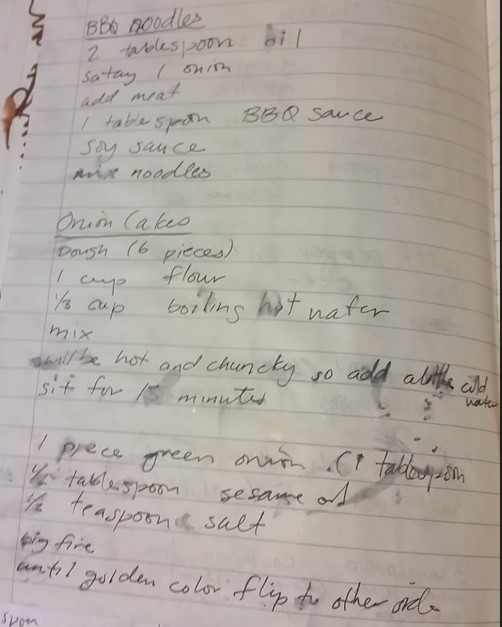 BBQ noodles
2 tablespoon oil
satay 1 onion
add meat
1 tablespoon BBQ sauce
soy sauce
mix noodles
Onion Cakes
Dough (6 pieces)
1 cup flour
1/3 cup boiling hot water
mix
will be hot and chuncky so add a little cold water
sit for 15 minutes
1 piece green onion (1 tablespoon
1/2 tablespoon sesame oil
1/2 teaspoon salt
big fire
until golden color flip to other side
spoon